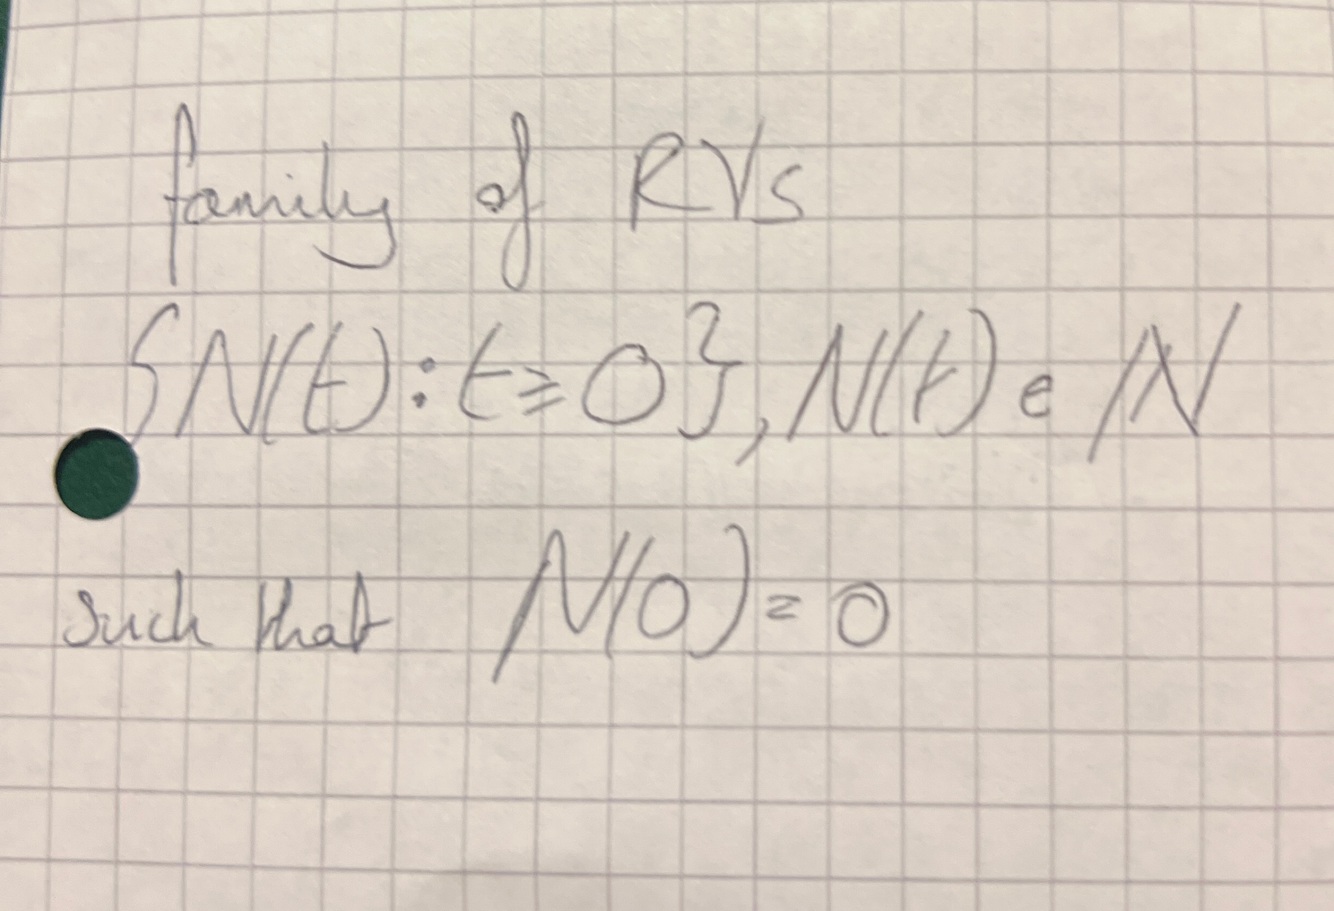 family of RVs
{N(t): t ≥ 0}, N(t) ∈ ℕ
such that N(0) = 0